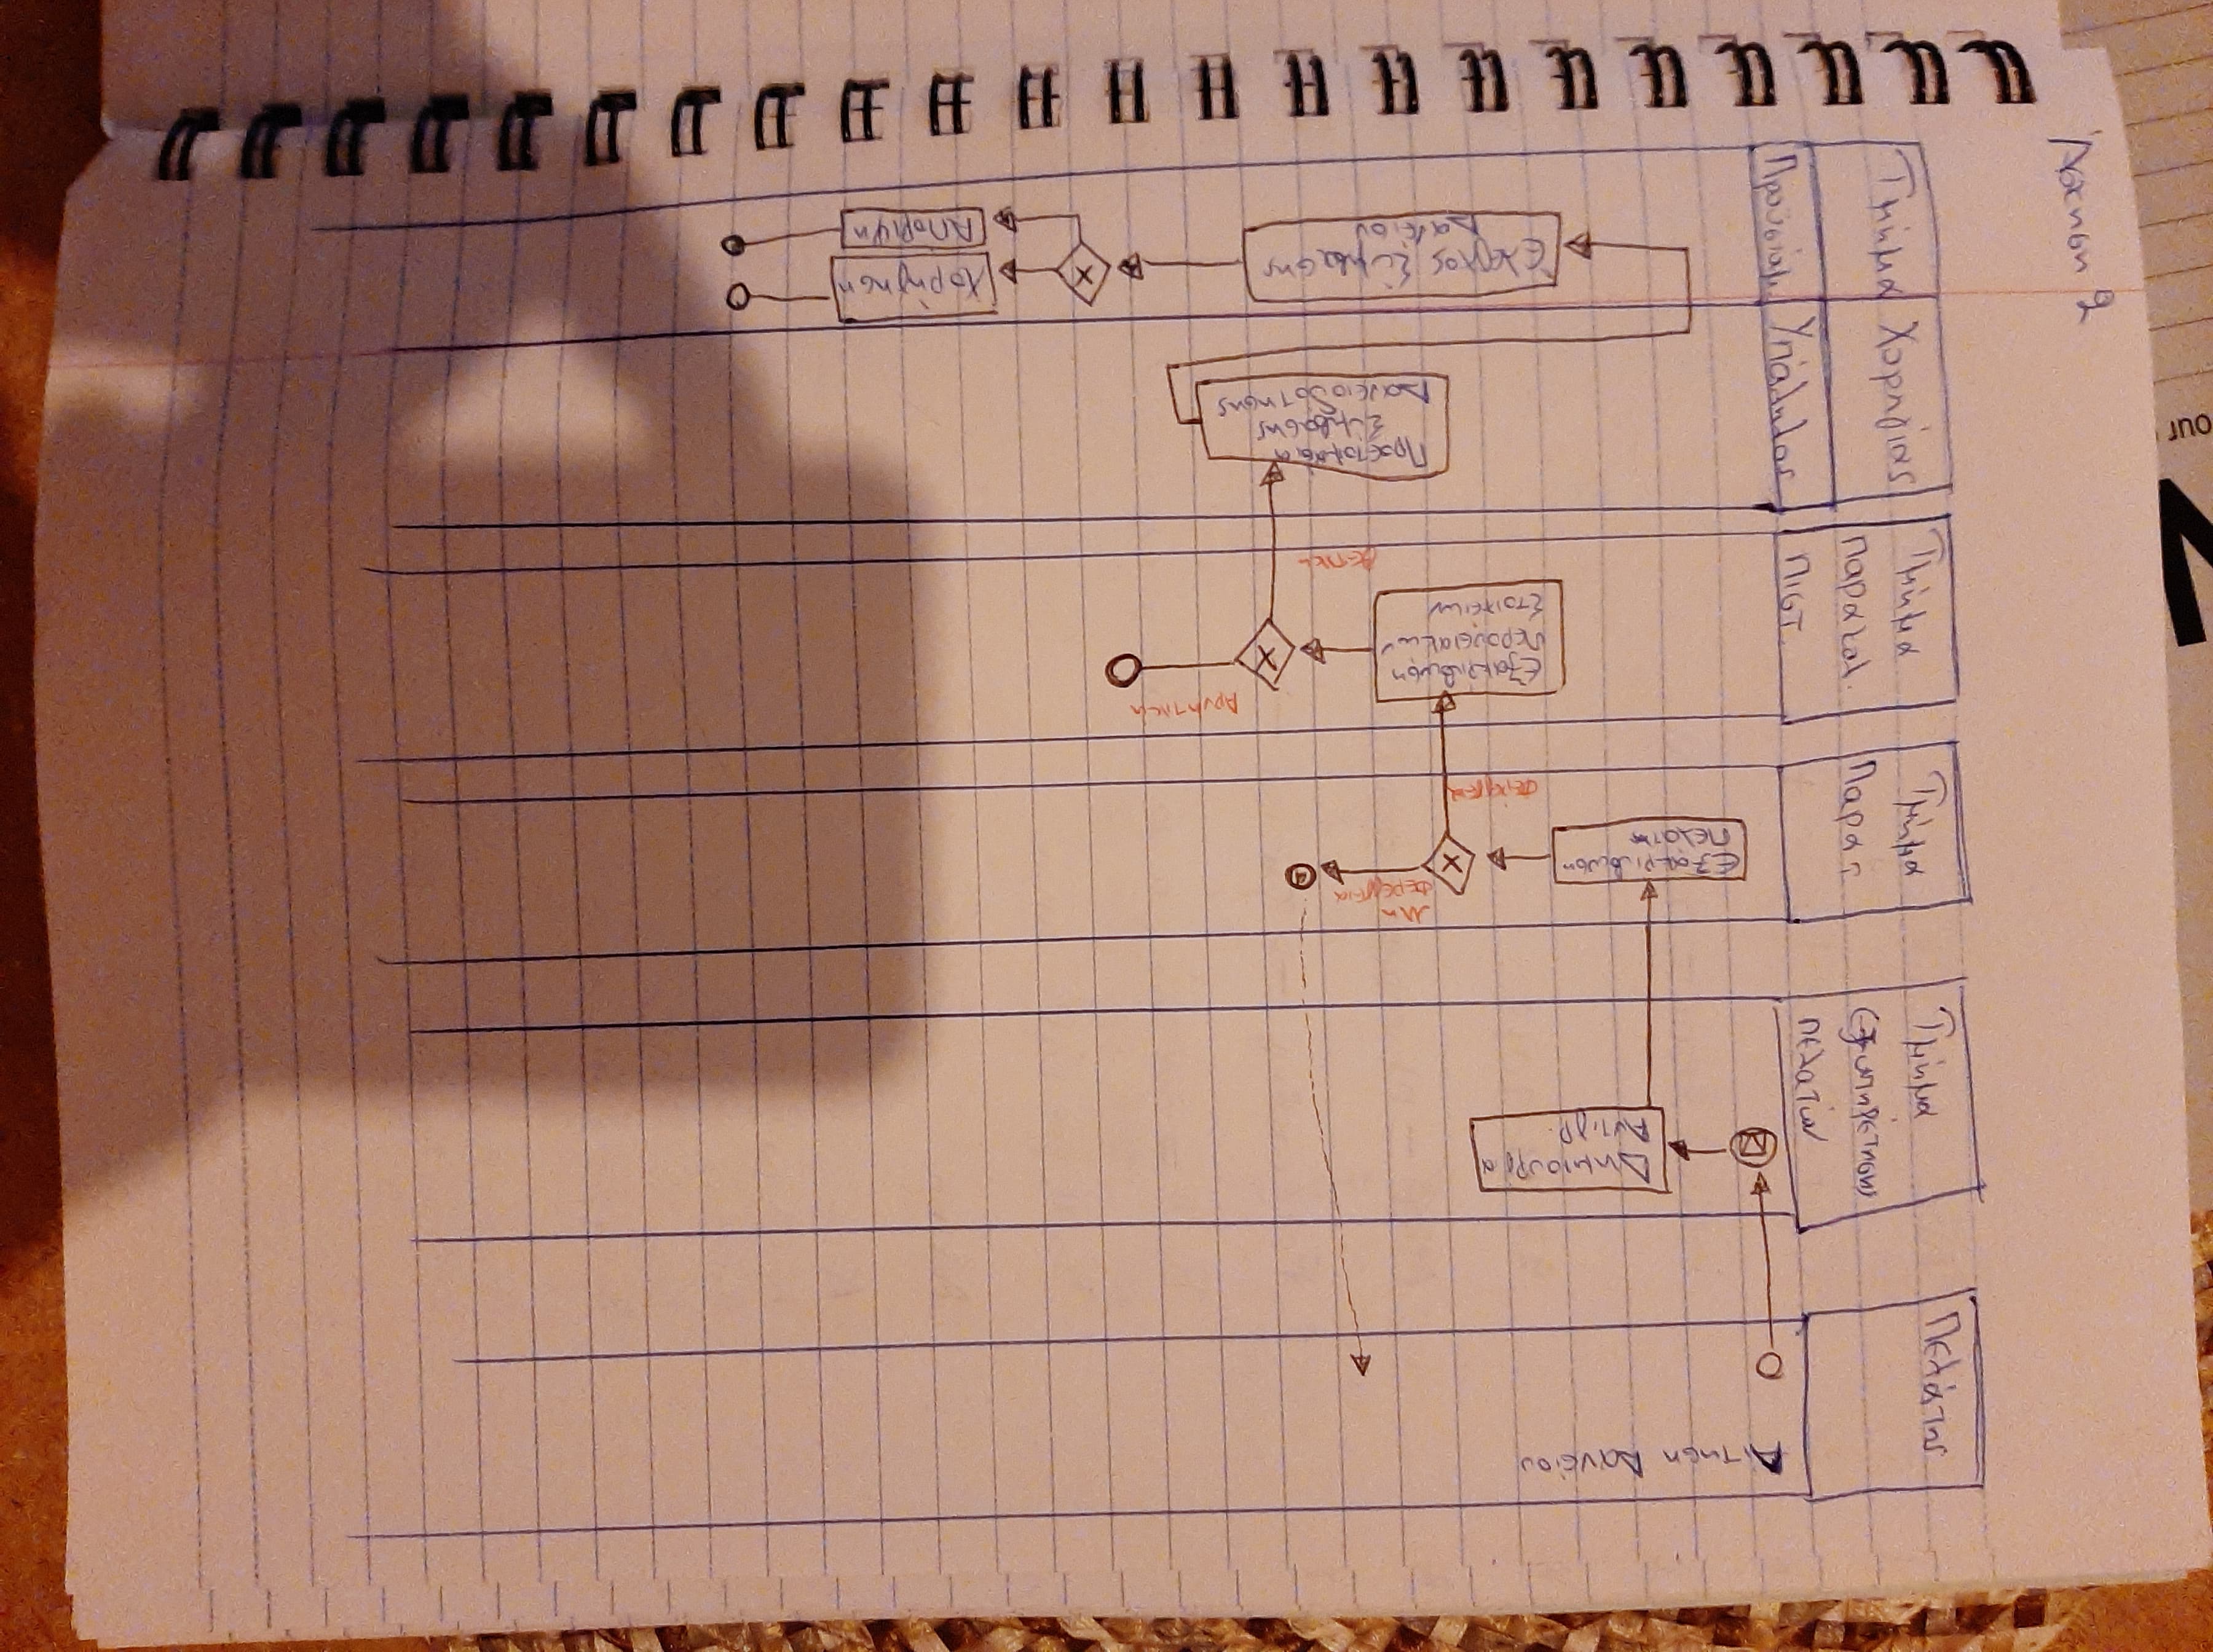 Άσκηση 9
Πελάτης
Αιτηση Δανείου
Τμήμα
εξυπηρέτησης
πελατών
Δημιουργία
Αντιγρ.
Τμήμα
Παρατ
Εξακρίβωση
πελάτη
Μη
Τμήμα
παρακολ.
πιστ.
Εξακρίβωση
περουσιακών
Στοιχείων
Αρνητική
θετικη
Τμήμα Χορηγίας
Υπάλληλος
Προετοιμασία
Σύμβασης
Δανειοδότησης
Έλεγχος Σύμβασης
Δανείου
Χορήγηση
Απόριψη
our